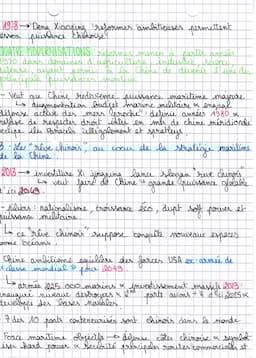 1978 → Deng Xiaoping réformes ambitieuses permettent
essor puissance chinoise
QUATRE MODERNISATIONS réformes menées à partir années
1970 dans domaines d'agriculture, industrie, science,
défense, ayant permis à la Chine de devenir l'une des
principales puissances mondiales
- Veut que Chine redevienne puissance maritime majeure
↳ augmentation budget marine militaire
défense active des mers "proche" années 1980
mer de Chine méridionale
îles Paracels
3 - Le "rêve chinois" au cœur de la stratégie maritime
de la Chine.
2013 → investiture Xi Jinping lance slogan "rêve chinois"
↳ veut faire de Chine "grande puissance globale"
d'ici 2049
- piliers : nationalisme, croissance éco, soft power et
puissance militaire
↳ ce "rêve chinois" suppose conquête nouveaux espaces
comme océans.
Chine ambitionne égaler des forces USA armée de
"classe mondiale" pour 2049.
↳ armée 225 000 marins investissement massif 2013 :
porte avions
développe des bases navales
- 7 des 10 ports conteneurisés sont chinois dans le monde
- Force maritime objectifs → défense côtes chinoises
hard power sécurité principales routes commerciales et